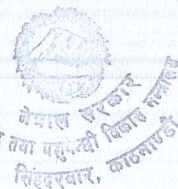 नेपाल सरकार
तथा पशुपन्छी विकास मन्त्रालय
सिंहदरवार, काठमाण्डौ